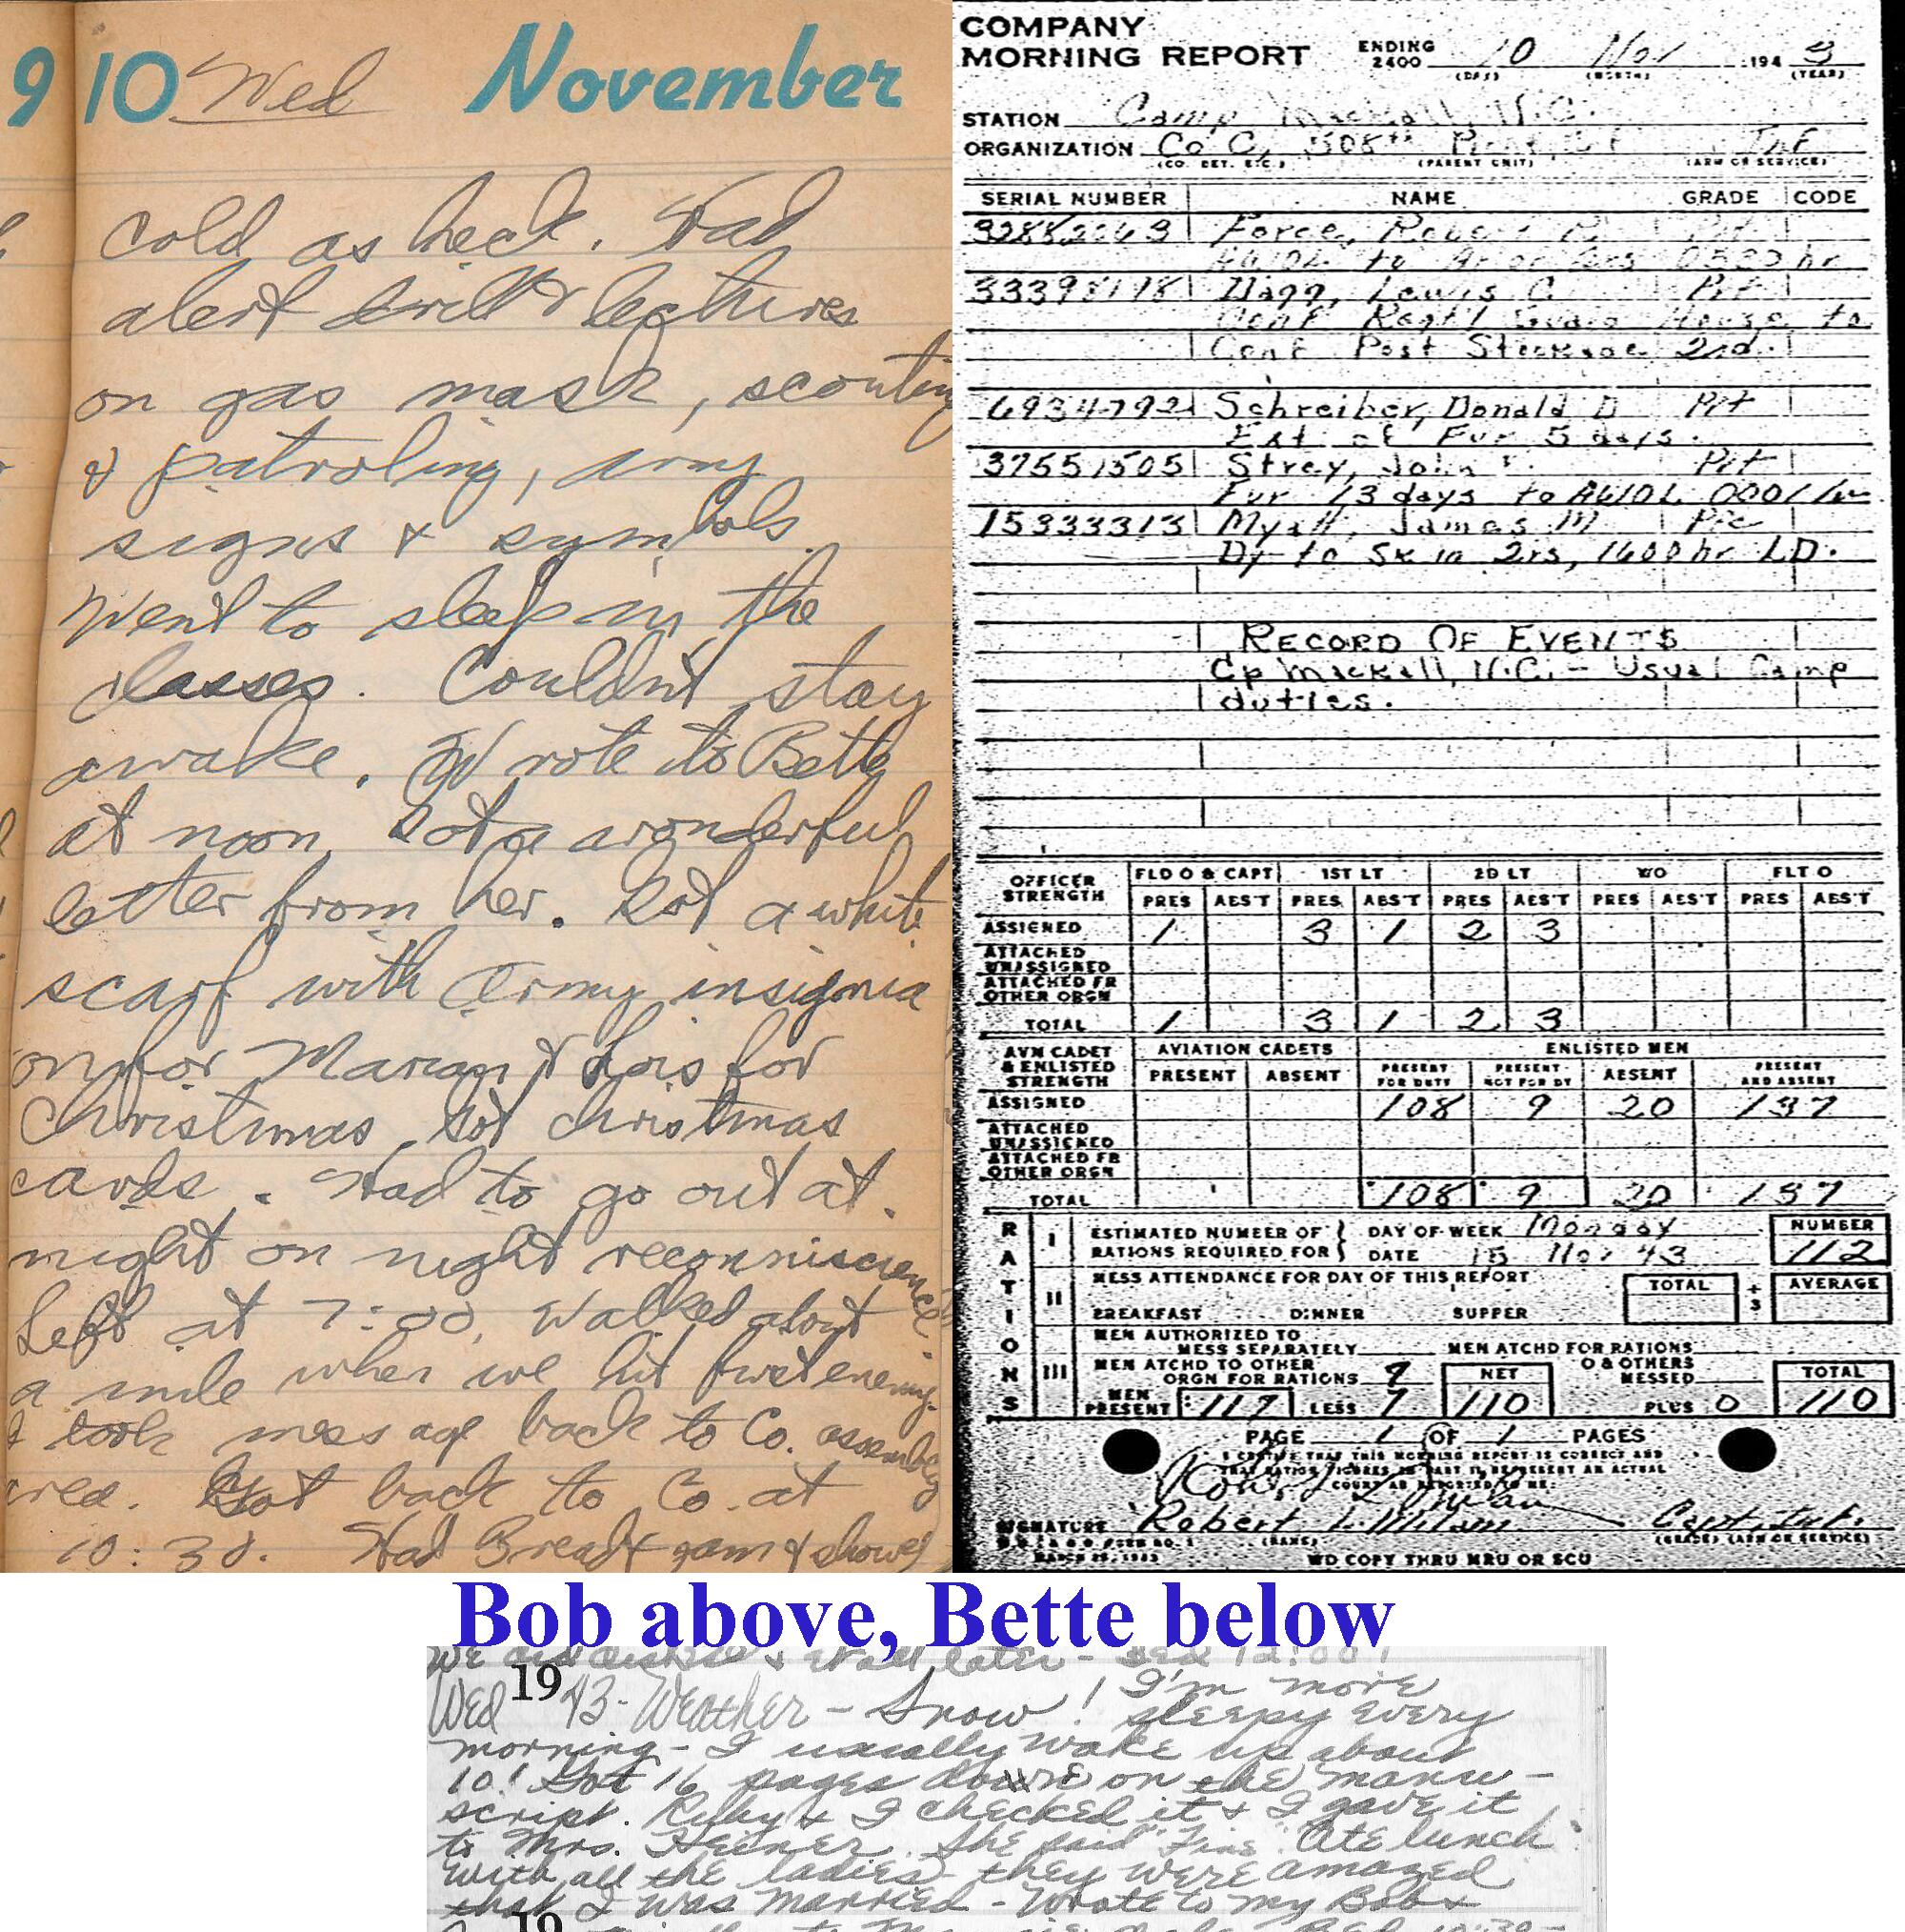 9 10 Wed November
Cold as heck. Had
alert drill & lectures
on gas mask, scouting
& patroling, army
signs & symbols.
Went to sleep in the
classes. Couldn't stay
awake. Wrote to Bette
at noon. Got a wonderful
letter from her. Got a white
scarf with army insignia
on for Marian & Lois for
Christmas. Got christmas
cards. Had to go out at
night on night reconniscience.
Left at 7:00. Walked about
a mile when we hit first enemy.
I took message back to Co. assembly
area. Got back to Co. at
10:30. Had Bread & jam & shower
COMPANY
MORNING REPORT ENDING 2400 10 Nov 1943
(DAY) (MONTH) (YEAR)
STATION Camp Mackall, N.C.
ORGANIZATION Co C, 508th Inf
(CO. DET. ETC.) (PARENT UNIT) (ARM OR SERVICE)
SERIAL NUMBER NAME GRADE CODE
Force, Pvt
AWOL to hr
33398118 Lewis C Pvt
Conf Regt'l Guard House to
Conf Post Stockade 2nd.
6934792 Schreiber, Donald D Pvt
Ext of Fur 5 days.
37551505 Strey, John Pvt
Fur 13 days to AWOL 0001 hr
15333313 Myall, James M Pfc
Dy to Sk in 2rs, 1600 hr LD.
RECORD OF EVENTS
Cp Mackall, N.C. - Usual Camp
duties.
OFFICER STRENGTH FLD O & CAPT 1ST LT 2D LT WO FLT O
PRES ABS'T PRES ABS'T PRES ABS'T PRES ABS'T PRES ABS'T
ASSIGNED 1 3 1 2 3
ATTACHED UNASSIGNED
ATTACHED FR OTHER ORGN
TOTAL 1 3 1 2 3
AVN CADET & ENLISTED STRENGTH AVIATION CADETS ENLISTED MEN
PRESENT ABSENT PRESENT FOR DUTY PRESENT NOT FOR DY ABSENT PRESENT AND ABSENT
ASSIGNED 108 9 20 137
ATTACHED UNASSIGNED
ATTACHED FR OTHER ORGN
TOTAL 108 9 20 137
RATIONS
I ESTIMATED NUMBER OF RATIONS REQUIRED FOR DAY OF WEEK Monday NUMBER
DATE 15 Nov 43 112
II MESS ATTENDANCE FOR DAY OF THIS REPORT TOTAL ÷ 3 AVERAGE
BREAKFAST DINNER SUPPER
III MEN AUTHORIZED TO MESS SEPARATELY MEN ATCHD FOR RATIONS
MEN ATCHD TO OTHER ORGN FOR RATIONS NET O & OTHERS MESSED TOTAL
MEN PRESENT 117 LESS 7 110 PLUS 0 110
PAGE 1 OF 1 PAGES
I CERTIFY THAT THIS MORNING REPORT IS CORRECT AND
THAT RATION FIGURES IN PART II REPRESENT AN ACTUAL
COUNT AS REPORTED TO ME:
SIGNATURE Robert
(NAME) (GRADE) (ARM OR SERVICE)
WD COPY THRU MRU OR SCU
Bob above, Bette below
We later - Bed 12:00!
Wed 1943 - Weather - Snow! I'm more
sleepy every
morning - I usually wake up about
10! Got 16 pages done on the manu-
script. Ruby & I checked it & I gave it
to Mrs. Heiner. She said "Fine". Ate lunch
with all the ladies - they were amazed
that I was married - Wrote to my Bob &
19